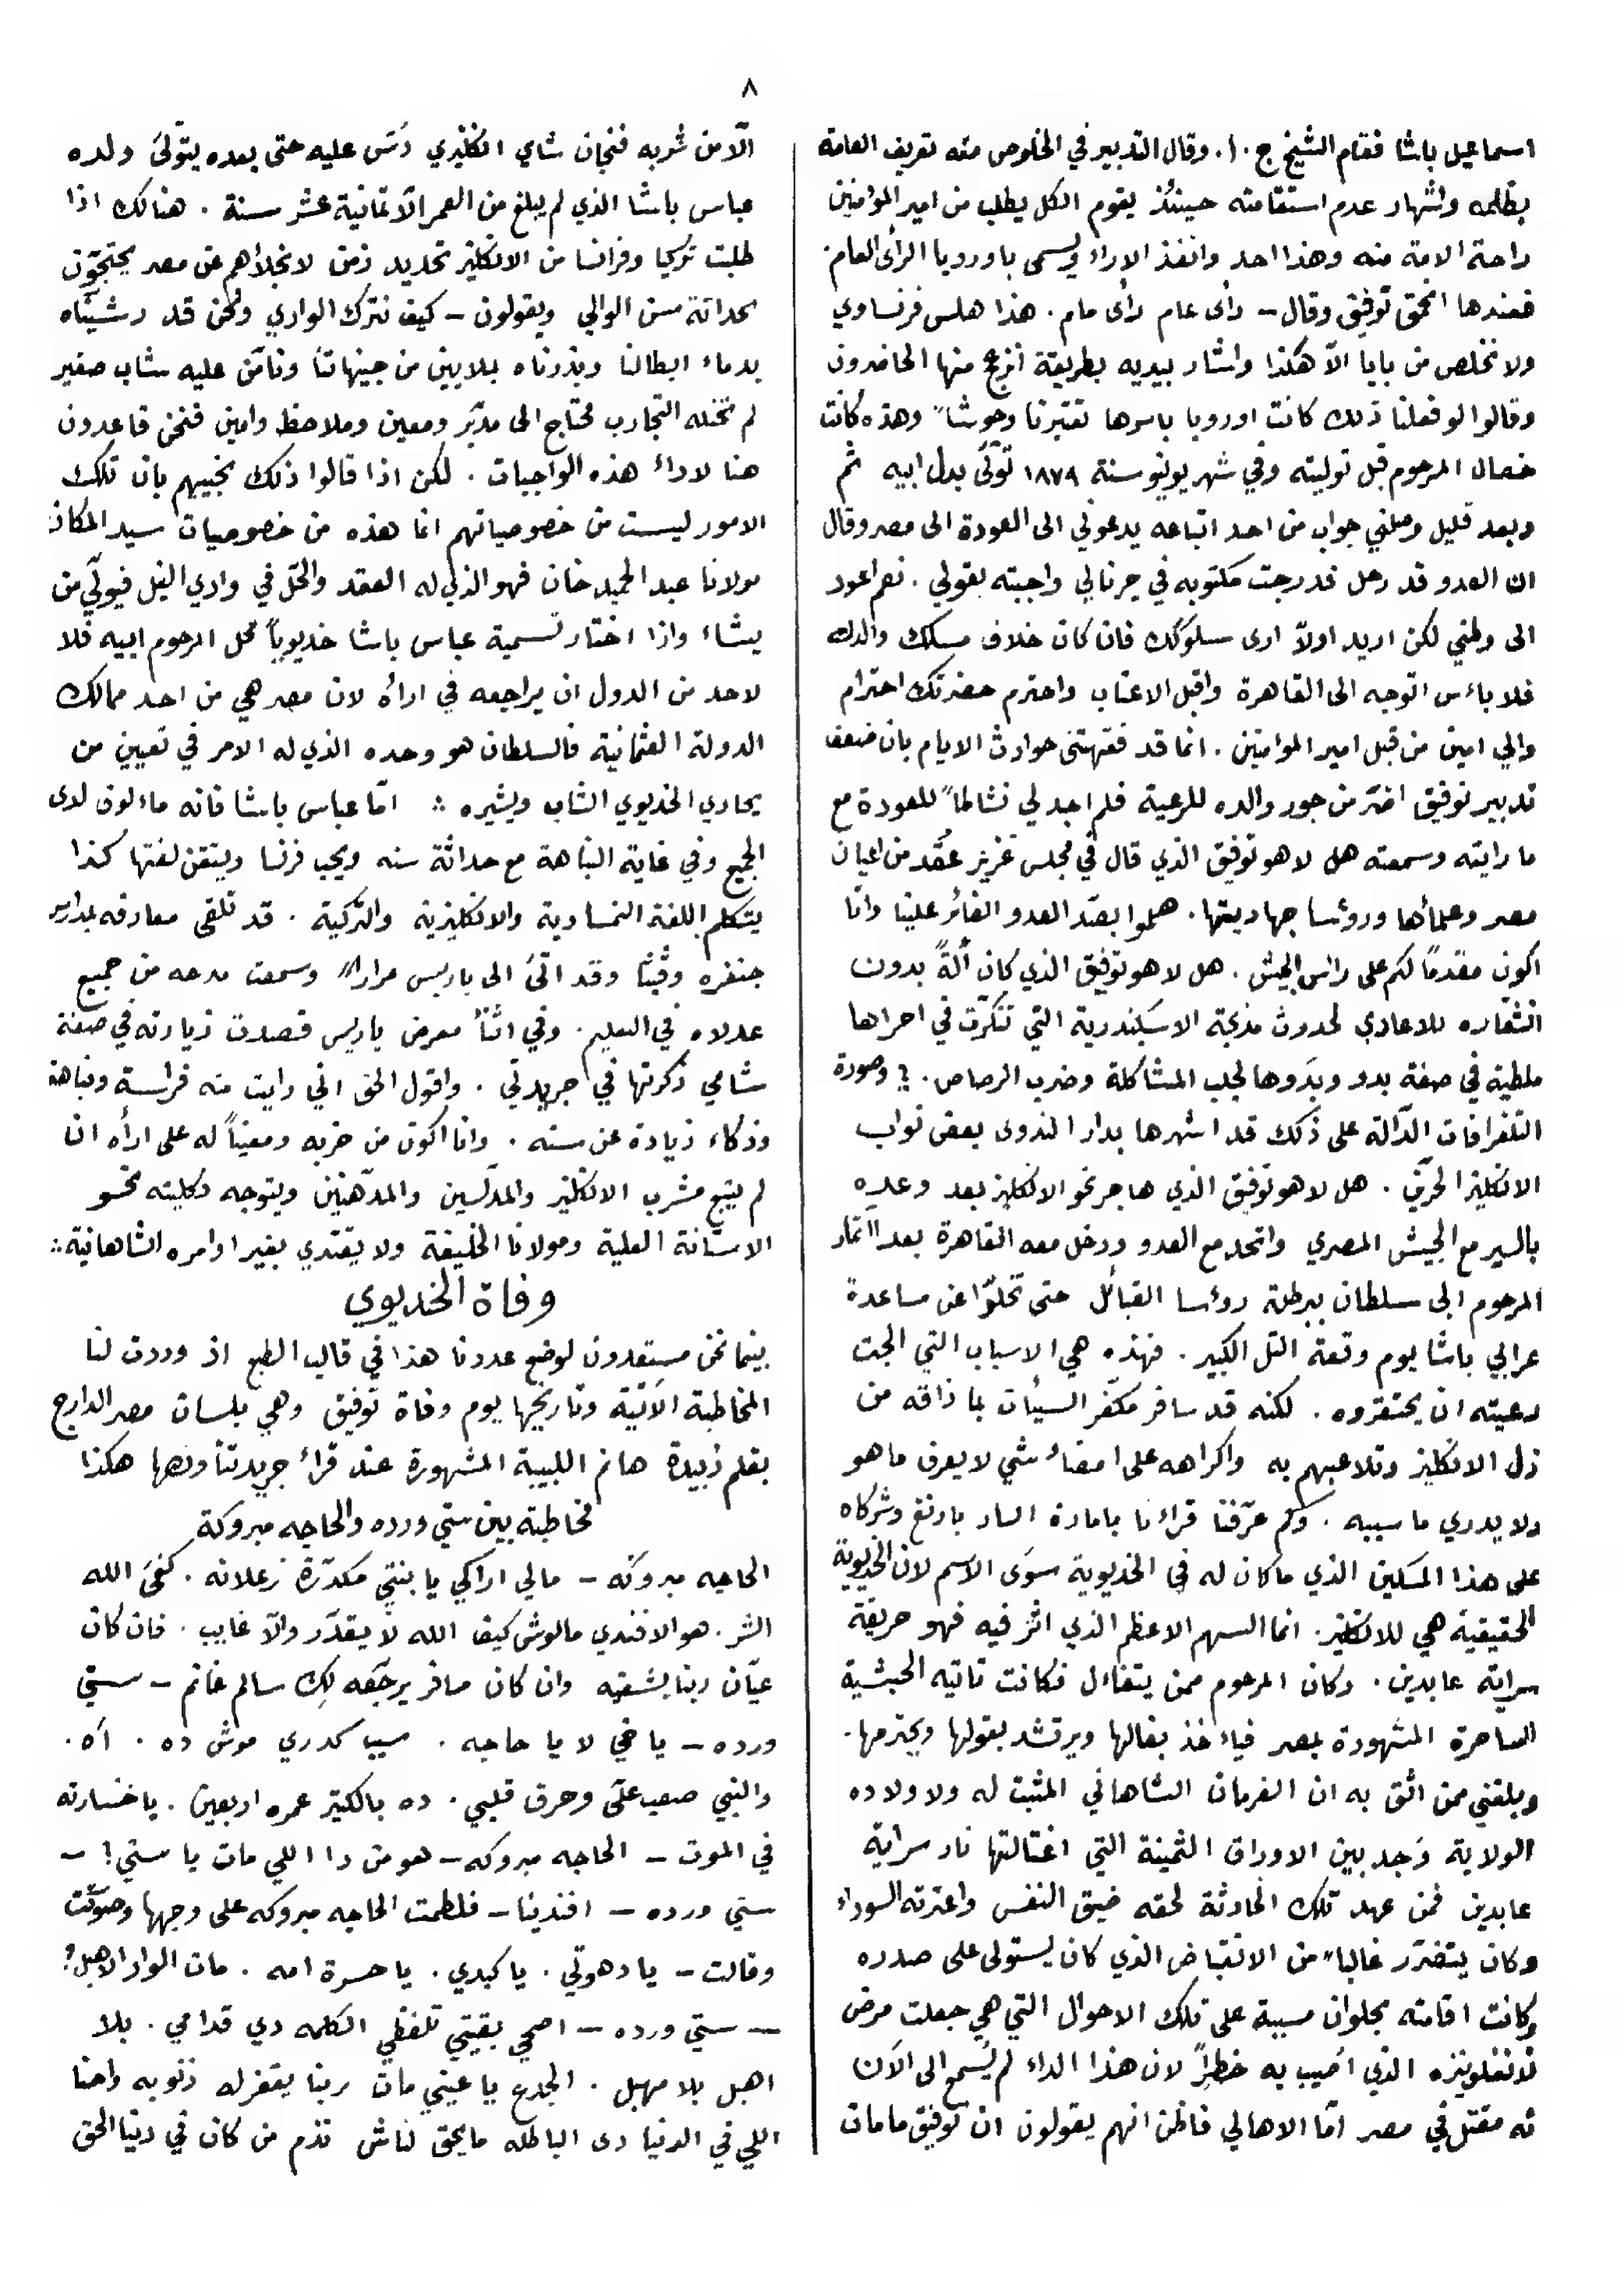 ٨
اسماعيل باشا فقام الشيخ ج . ا . وقال التدبير في الخلوص منه تعريف العامة
بظلمه واشهار عدم استقامته حينئذ يقوم الكل يطلب من امير المؤمنين
راحة الامة منه وهذا احد وانفذ الاراء ويسمى باوروپا الرأى العام
فعندها انحمق توفيق وقال – رأى عام رأى مام . هذا هلس فرنساوي
ولا نخلص من بابا الّا هكذا واشار بيديه بطريقة انزعج منها الحاضرون
وقالوا لو فعلنا ذلك كانت اوروپا باسرها تعتبرنا وحوشاً وهذه كانت
خصال المرحوم قبل توليته وفي شهر يونيو سنة ١٨٧٩ تولّى بدل ابيه ثم
وبعد قليل وصلني جواب من احد اتباعه يدعوني الى العودة الى مصر وقال
ان العدو قد رحل فدرجت مكتوبه في جرنالي واجبته بقولي . نعم اعود
الى وطني لكن اريد اولاً ارى سلوكك فان كان خلاف مسلك والدك
فلا باءس اتوجه الى القاهرة واقبل الاعتاب واحترم حضرتك احترام
والي امين من قبل امير الموامنين . انما قد فقهتنى حوادث الايام بان ضعف
تدبير توفيق اضرّ من جور والده للرعية فلم اجد لي نشاطاً للعودة مع
ما رايته وسمعته هل لا هو توفيق الذي قال في مجلس عزيز عُقد من اعيان
مصر وعلمأها وروٌسا جهاديتها . هلموا بصدّ العدو الغائر علينا وانا
اكون مقدماً لكم على راس الجيش . هل لا هو توفيق الذي كان ألةً بدون
اشعاره للاعادي لحدوث مذبحة الاسكندرية التي تنكّرت في اجراها
ملطية في صفة بدو وبدَوها لجلب المشاكلة وضرب الرصاص . وصورة
التلغرافات الدّالة على ذلك قد اشهرها بدار الندوى بعض نواب
الانكليز الحرّين . هل لا هو توفيق الذي هاجر نحو الانكليز بعد وعدِه
بالسير مع الجيش المصري واتحد مع العدو ودخل معه القاهرة بعد
المرحوم ابى سلطان ببرطلة روٌسا القبائل حتى تخلّوا عن مساعدة
عرابي باشا يوم وقعة التل الكبير . فهذه هي الاسباب التي الجت
رعيته ان يحتقروه . لكنه قد سافر مكفّر السيئات بما ذاقه من
ذل الانكليز وتلاعبهم به واكراهه على امضاء شي لا يعرف ما هو
ولا يدري ما سببه . وكم عرّفنا قراءنا بامارة السار بارنغ وشركاه
على هذا المسكين الذي ما كان له في الخديوية سوَى الاسم لان الخديوية
الحقيقية هي للانكليز . انما السهم الاعظم الذي اثر فيه فهو حريقة
سراية عابدين . وكان المرحوم ممن يتفاءل فكانت تاتيه الحبشية
الساحرة المشهورة بمصر فياءخذ بفالها ويرتشد بقولها ويحترمها .
وبلغني ممن اثق به ان الفرمان الشاهاني المثبت له ولاولاده
الولاية وُجد بين الاوراق الثمينة التي اغتالتها نار سراية
عابدين فمن عهد تلك الحادثة لحقه ضيق النفس واعترته السوداء
وكان يتضرّر غالباً من الانقباض الذي كان يستولى على صدره
وكانت اقامته بحلوان مسببة على تلك الاحوال التي هي جعلت مرض
الانفلوينزه الذي اصيب به خطراً لان هذا الداء لم يُسمع الى الآن
له مقتل في مصر امّا الاهالي فاظن انهم يقولون ان توفيق ما مات
الّا من شُربه فنجان شاي انكليزي دُسّ عليه حتى بعده يتولّى ولده
عباس باشا الذي لم يبلغ من العمر الّا ثمانية عشر سنة . هنالك اذا
طلبت تركيا وفرانسا من الانكليز تحديد زمن لانجلأهم عن مصر يحتجّون
بحداثة سن الوالي ويقولون – كيف نترك الوادي ونحن قد رشيّناه
بدماء ابطالنا وبذرناه بملايين من جنيهاتنا ونأمّن عليه شاب صغير
لم تحنكه التجارب محتاج الى مدبّر ومعين وملاحظ وامين فنحن قاعدون
هنا لاداء هذه الواجبات . لكن اذا قالوا ذلك نجيبهم بان تلك
الامور ليست من خصوصياتهم انما هذه من خصوصيات سيد المكان
مولانا عبد الحميد خان فهو الذي له العقد والحَل في وادي النيل فيولّي من
يشاء واذا اختار تسمية عباس باشا خديوياً محل المرحوم ابيه فلا
لاحد من الدول ان يراجعه في ارأه لان مصر هي من احد ممالك
الدولة العثمانية فالسلطان هو وحده الذي له الامر في تعيين من
يحاري الخديوي الشاب ويشيره ؞ امّا عباس باشا فانه ماءلوف لدى
الجميع وفي غاية النباهة مع حداثة سنه ويحب فرنسا ويتقن لغتها كذا
يتكلم اللغة النمساوية والانكليزية والتركية . قد تلقى معارفه بمدارس
جنفره وڤينّا وقد اتَى الى پاريس مراراً وسمعت مدحه من جميع
عدلاه في التعليم . وفي اثنأ معرض پاريس قصدت زيارته في صفة
شامي ذكرتها في جريدتي . واقول الحق اني رايت منه فراسة ونباهة
وذكاء زيادة عن سنه . وانا اكون من حزبه ومعيناً له على ارأه ان
لم يتبع مشرب الانكليز والمدلّسين والمدّهنين ويتوجه بكليته نحو
الاستانة العلية ومولانا الخليفة ولا يقتدي بغير اوامره الشاهانية ؞
وفاة الخديوي
بينما نحن مستعدون لوضع عددنا هذا في قالب الطبع اذ وردت لنا
المخاطبة الآتية وتاريخها يوم وفاة توفيق وهي بلسان مصر الدارج
بقلم زبيدة هانم اللبيبة المشهورة عند قراء جريدتنا ونصها هكذا
مخاطبة بين ستي ورده والحاجه مبروكة
الحاجه مبروكه – مالي اراكي يا بنتي مكدّرة زعلانه . كفىَ الله
الشر . هو الافندي مالوش كيف الله لا يقدّر والّا غايب . فان كان
عيّان ربنا يشفيه وان كان مسافر يرجّعه لِك سالم غانم – ستي
ورده – ياختي لا يا حاجه . سبب كدري موش ده . آه .
والنبي صعب علىّ وحرق قلبي . ده بالكتير عمره اربعين . يا خسارته
في الموت – الحاجه مبروكه – هو من دا اللي مات يا ستي ! –
ستي ورده – افندينا – فلطمت الحاجه مبروكه على وجهها وصوّتت
وقالت – يا دهوتي . يا كبدي . يا حسرة امه . مات الواد الاهبل !
– ستي ورده – اصحي بقيتي تلفظي الكلمه دي قدامي . بلا
اهبل بلا مهبل . الجدع يا عيني مات ربنا يغفر له ذنوبه واحنا
اللي في الدنيا دى الباطله ما يحق لناش نذم من كان في دنيا الحق